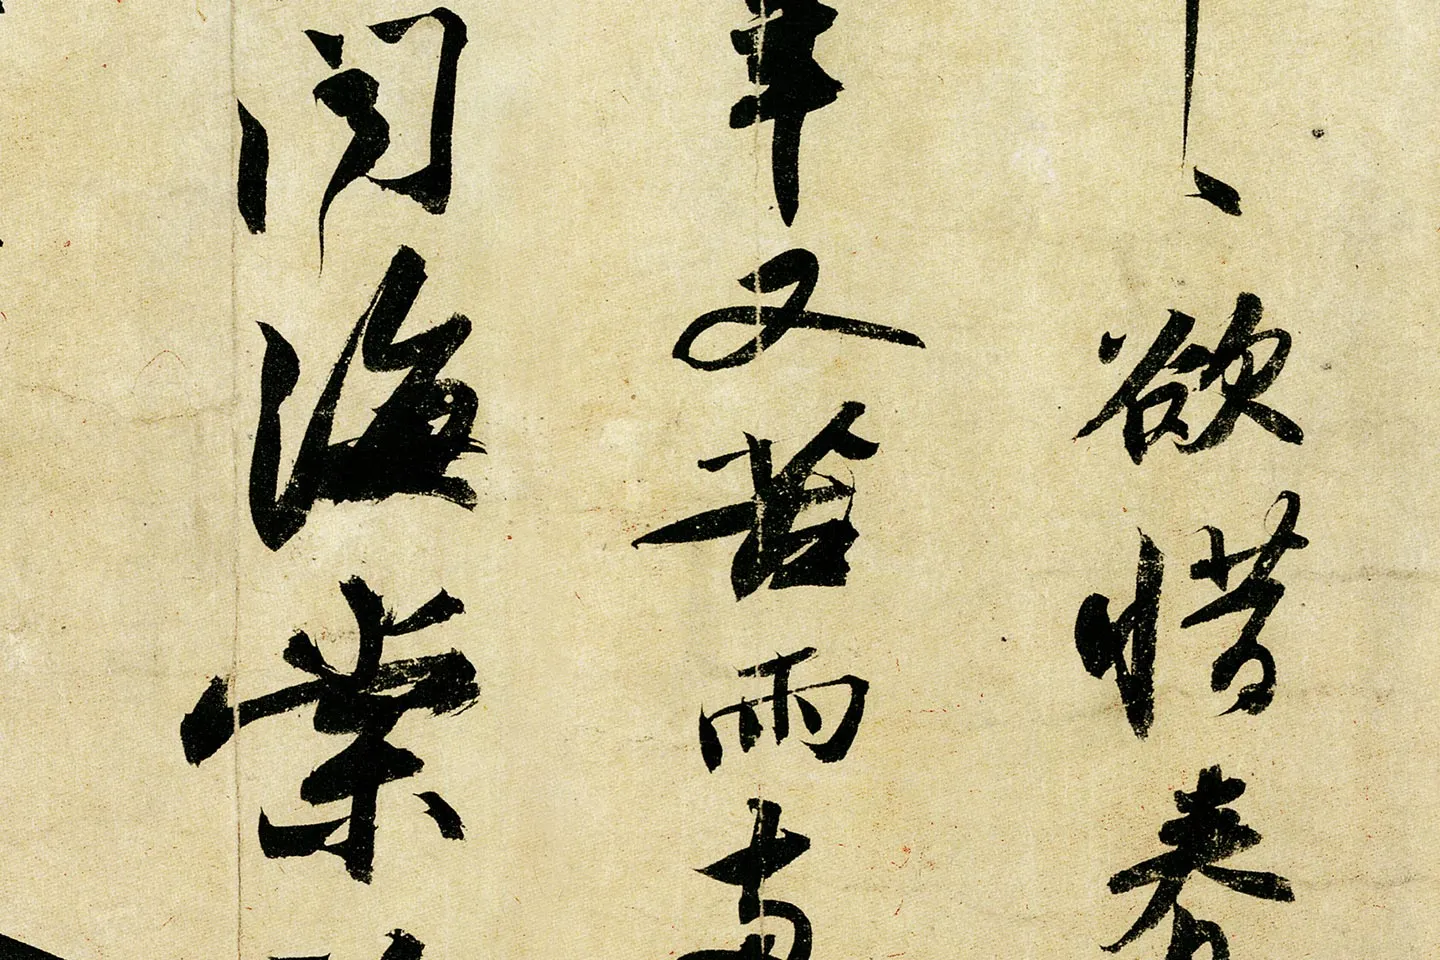 欲惜春
年又苦雨兩
聞海棠